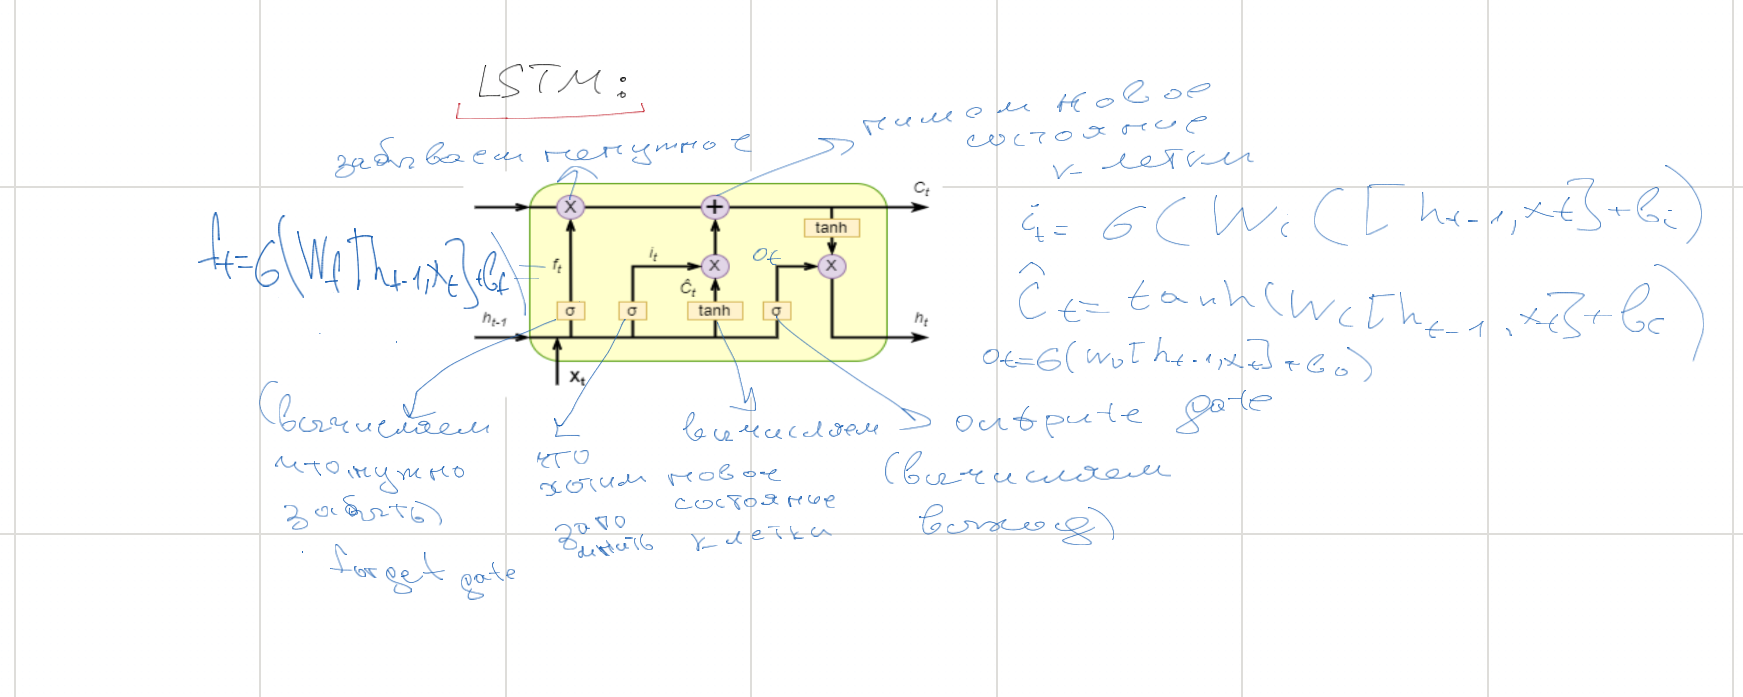 LSTM:
забываем ненужное
пишем новое
состояние
клетки
C_t
f_t = σ(W_f[h_{t-1}, x_t] + b_f)
i_t = σ(W_i([h_{t-1}, x_t] + b_i)
X
+
tanh
f_t
i_t
o_t
X
X
Ĉ_t
Ĉ_t = tanh(W_c[h_{t-1}, x_t] + b_c)
σ
σ
tanh
σ
h_{t-1}
h_t
x_t
o_t = σ(W_o[h_{t-1}, x_t] + b_o)
(вычисляем
что нужно
забыть)
forget gate
что
хотим
запо
минать
вычисляем
новое
состояние
клетки
output gate
(вычисляем
выход)